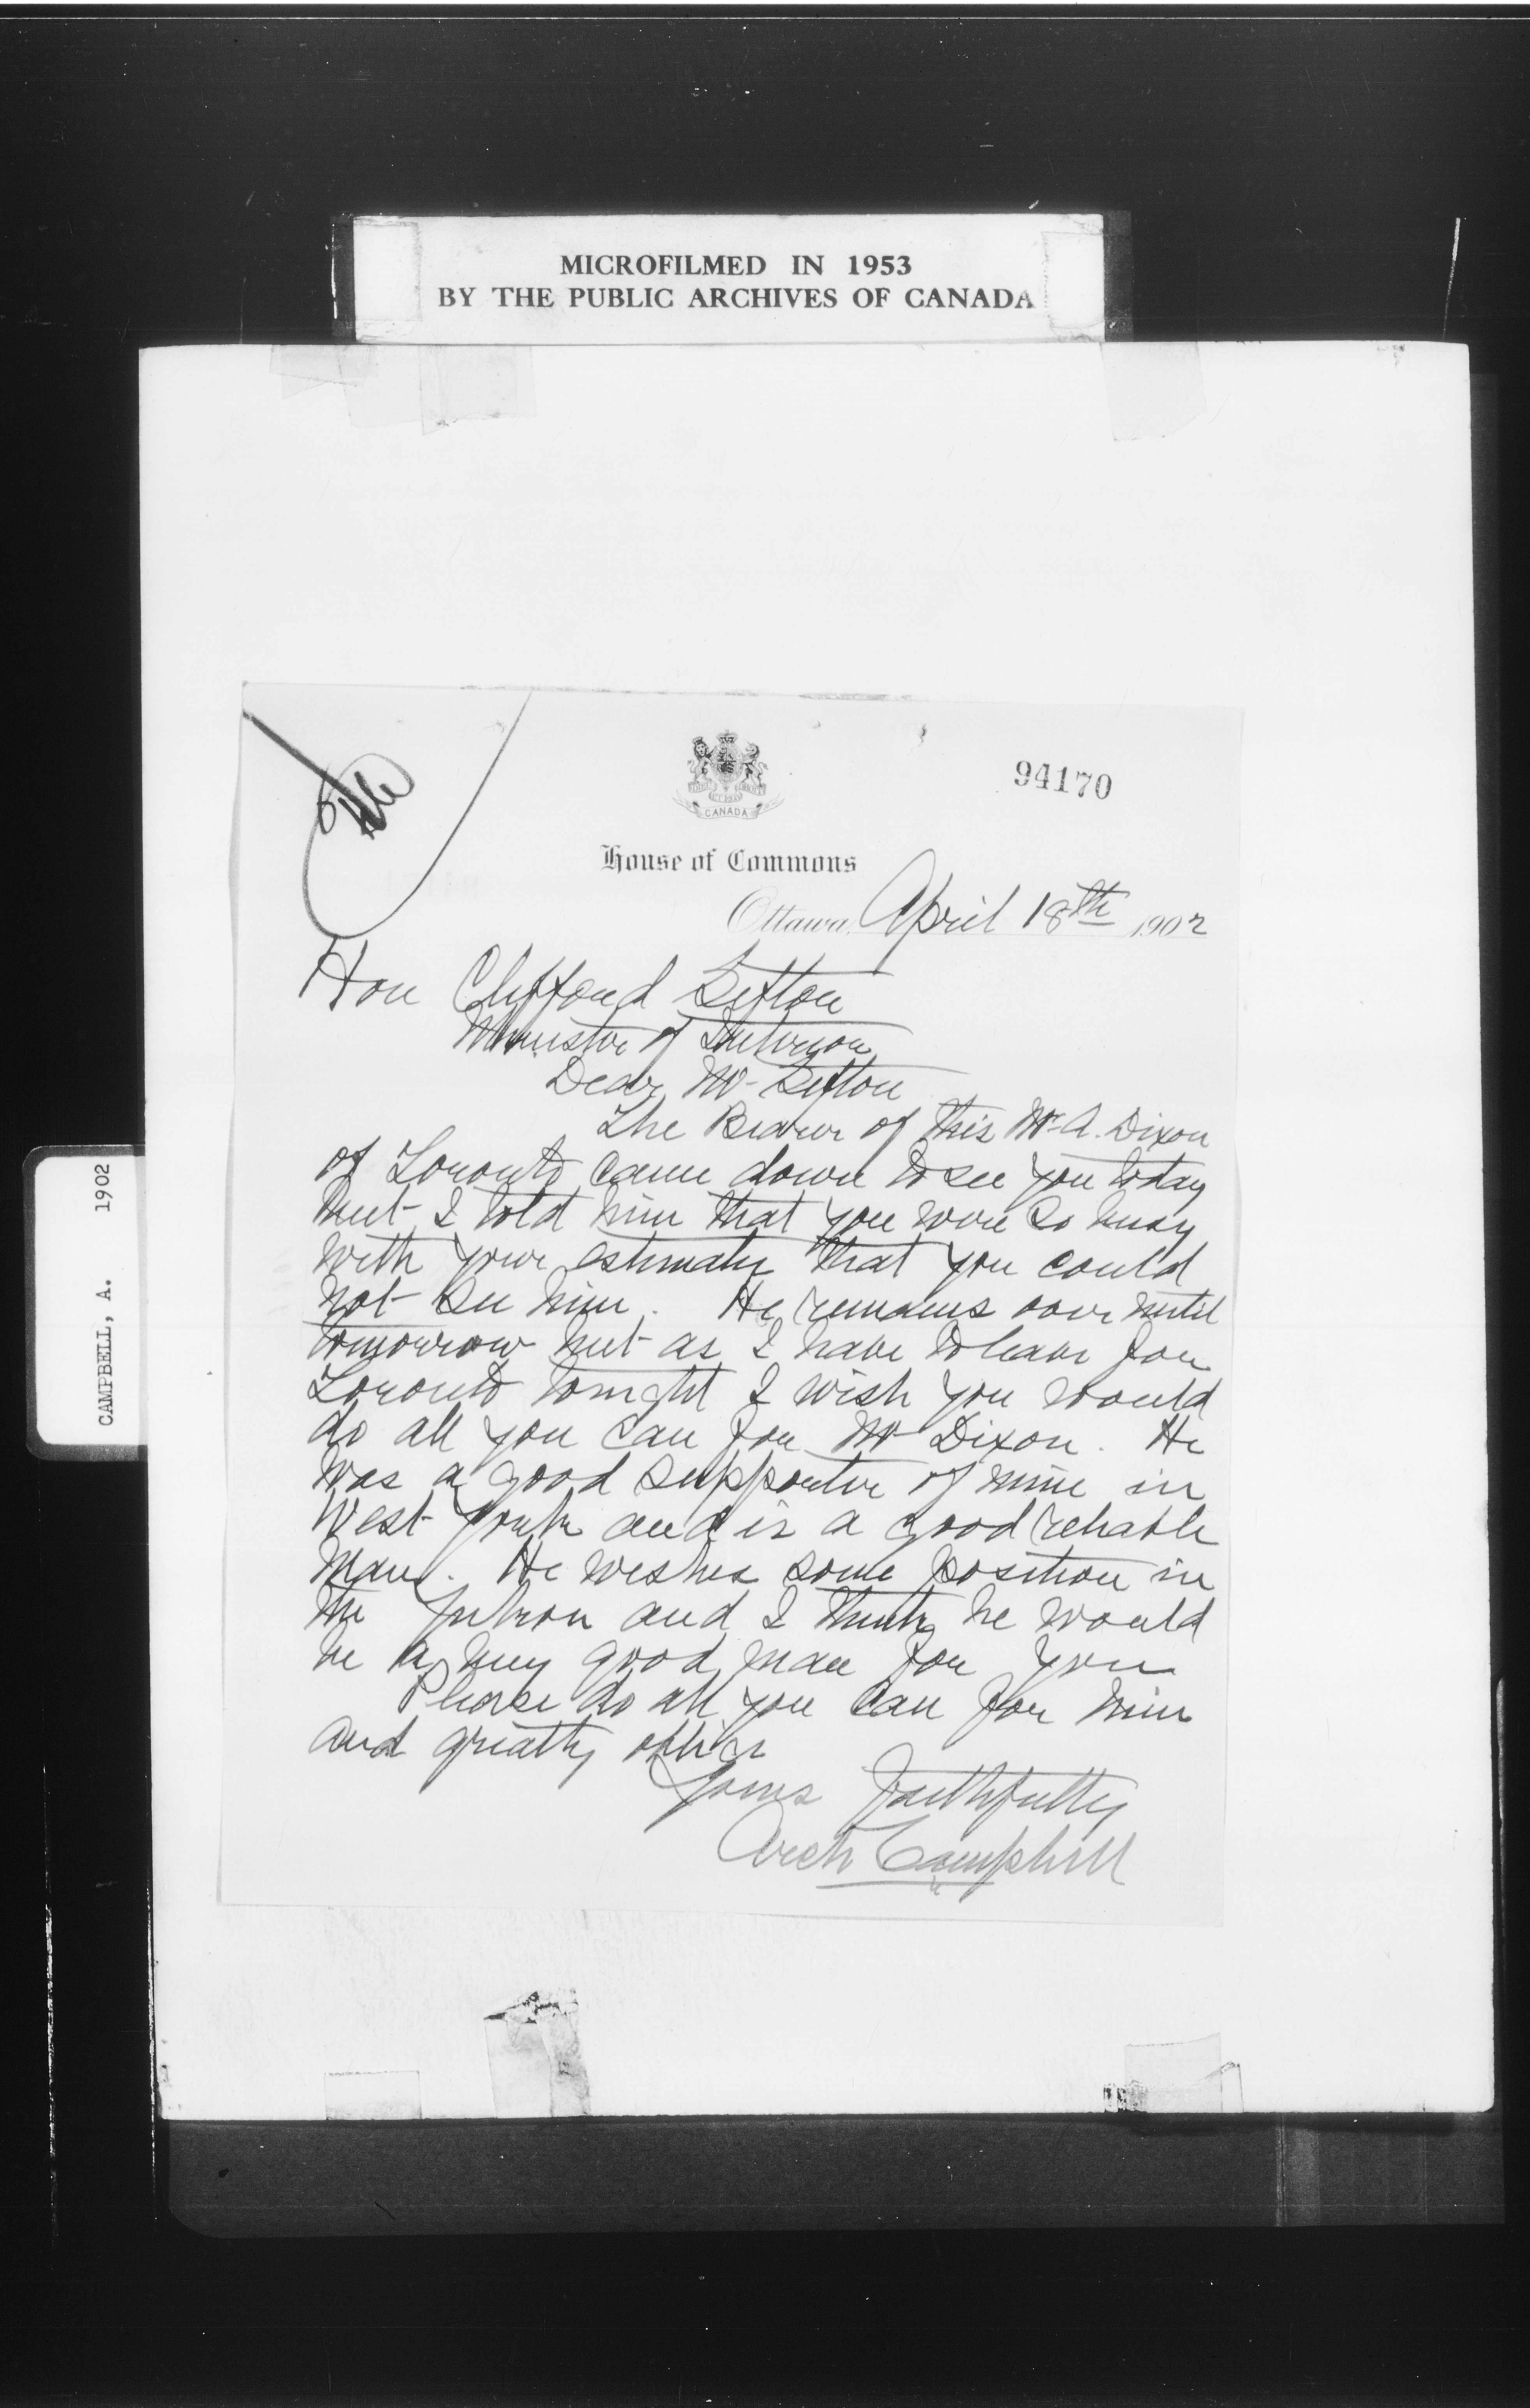 MICROFILMED IN 1953
BY THE PUBLIC ARCHIVES OF CANADA
CAMPBELL, A. 1902
94170
CANADA
House of Commons
Ottawa, April 18th 1902
Hon Clifford Sifton
Minister of Interior
Dear Mr Sifton
The Bearer of this Mr A. Dixon
of Toronto came down to see you today
but I told him that you were so busy
with your estimates that you could
not see him. He remains over until
tomorrow but as I have to leave for
Toronto tonight I wish you would
do all you can for Mr Dixon. He
was a good supporter of mine in
West York and is a good reliable
man. He wishes some position in
the Yukon and I think he would
be a very good man for you
Please do all you can for him
and greatly oblige
Yours faithfully
Arch Campbell